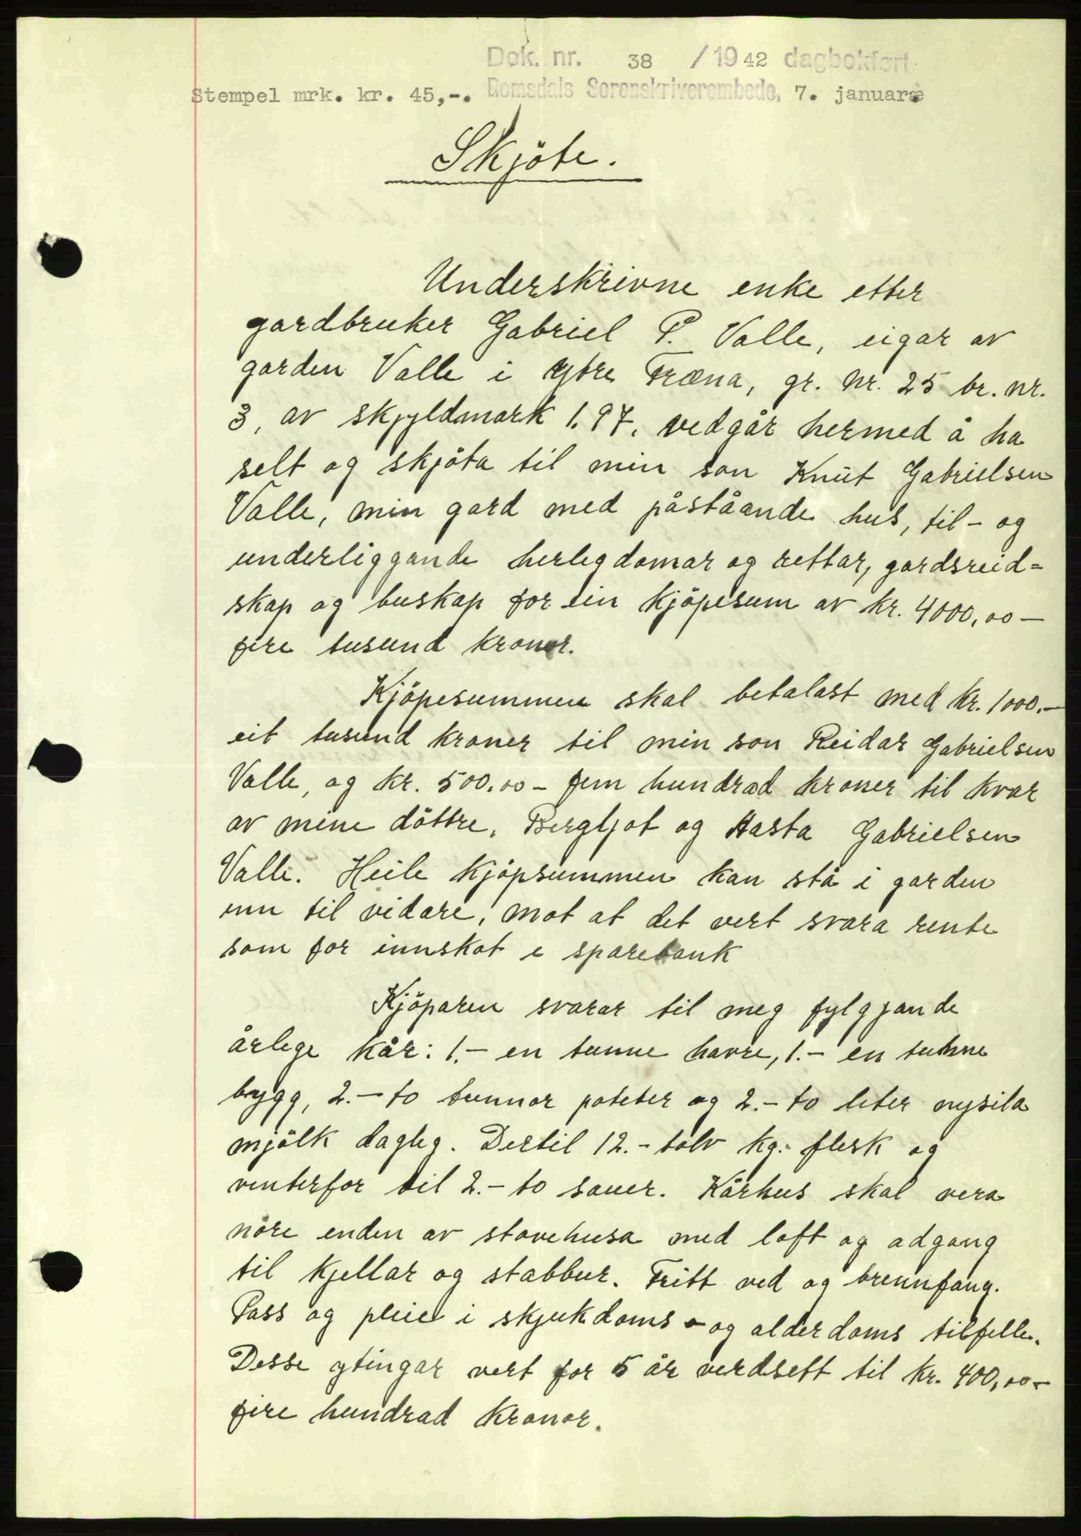 Dok. nr. 38 / 1942 dagbokført
Stempel mrk. kr. 45,-. Romsdals Sorenskriverembede, 7. januar
Skjöte.
Underskrivne enke etter
gardbruker Gabriel P. Valle, eigar av
garden Valle i Ytre Fræna, gr. nr. 25 br. nr.
3, av skjyldmark 1.97, vedgår hermed å ha
selt og skjöta til min son Knut Gabrielsen
Valle, min gard med påståande hus, til- og
underliggande herlegdomar og rettar, gardsreid-
skap og buskap for ein kjöpesum av kr. 4000,00 -
fire tusund kronor.
Kjöpesummen skal betalast med kr. 1000.-
eit tusund kroner til min son Reidar Gabrielsen
Valle, og kr. 500.00 - fem hundrad kroner til kvar
av mine döttre, Bergljot og Aasta Gabrielsen
Valle. Heile kjöpsummen kan stå i garden
inn til vidare, mot at det vert svara rente
som for innskot i sparebank
Kjöparen svarar til meg fylgjande
årlege kår: 1.- en tunne havre, 1.- en tunne
bygg, 2.- to tunnor poteter og 2.- to liter nysila
mjölk dagleg. Dertil 12.- tolv kg. flesk og
vinterfor til 2.- to sauer. Kårhus skal vera
nöre enden av stovehusa med loft og adgang
til kjellar og stabbur. Fritt ved og brennfang.
Pass og pleie i skjukdoms - og alderdoms tilfelle.
Desse ytingar vert for 5 år verdsett til kr. 400,00-
fire hundrad kronor.